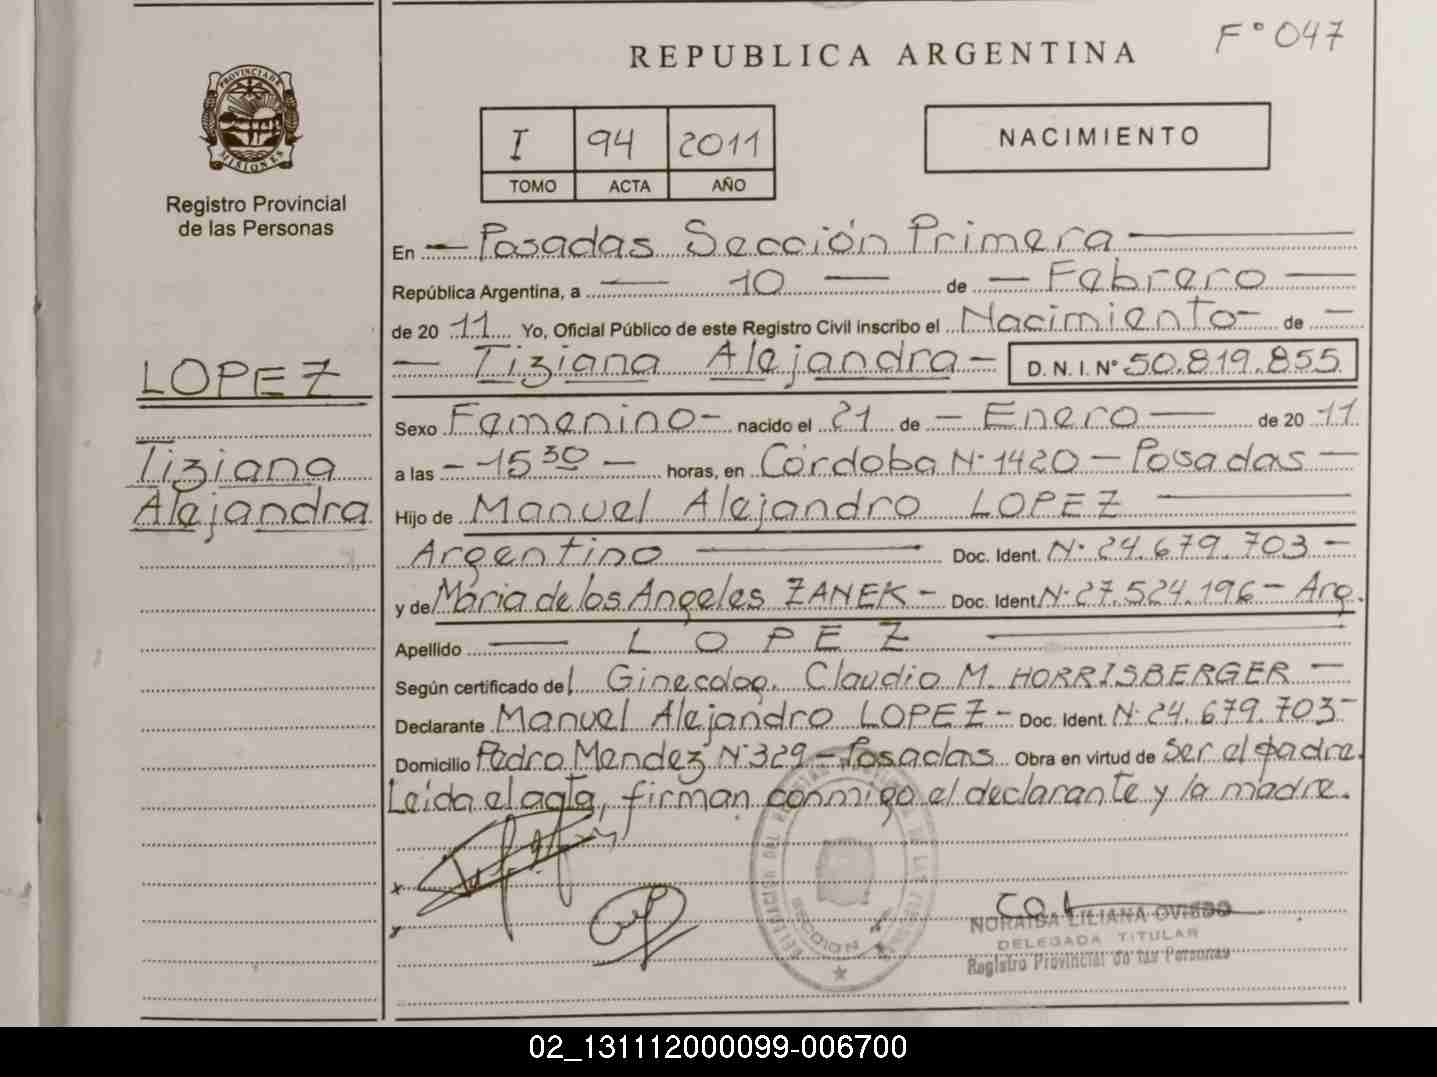 F° 047
REPUBLICA ARGENTINA
PROVINCIA DE
MISIONES
Registro Provincial
de las Personas
I 94 2011
TOMO ACTA AÑO
NACIMIENTO
LOPEZ
Tiziana
Alejandra
En — Posadas Sección Primera —
República Argentina, a — 10 — de — Febrero —
de 20 11 Yo, Oficial Público de este Registro Civil inscribo el Nacimiento — de —
— Tiziana Alejandra — D. N. I. N° 50.819.855
Sexo Femenino — nacido el 21 de — Enero — de 20 11
a las — 15 30 — horas, en Córdoba N° 1420 — Posadas —
Hijo de Manuel Alejandro LOPEZ —
Argentino — Doc. Ident. N° 24.679.703 —
y de Maria de los Angeles ZANEK — Doc. Ident N° 27.524.196 — Arg.
Apellido — LOPEZ —
Según certificado del Ginecolog. Claudio M. HORRISBERGER —
Declarante Manuel Alejandro LOPEZ — Doc. Ident. N° 24.679.703 —
Domicilio Pedro Mendez N° 329 — Posadas Obra en virtud de Ser el padre.
Leída el acta, firman conmigo el declarante y la madre.
NORAIDA LILIANA OVIEDO
DELEGADA TITULAR
Registro Provincial de las Personas
02_131112000099-006700